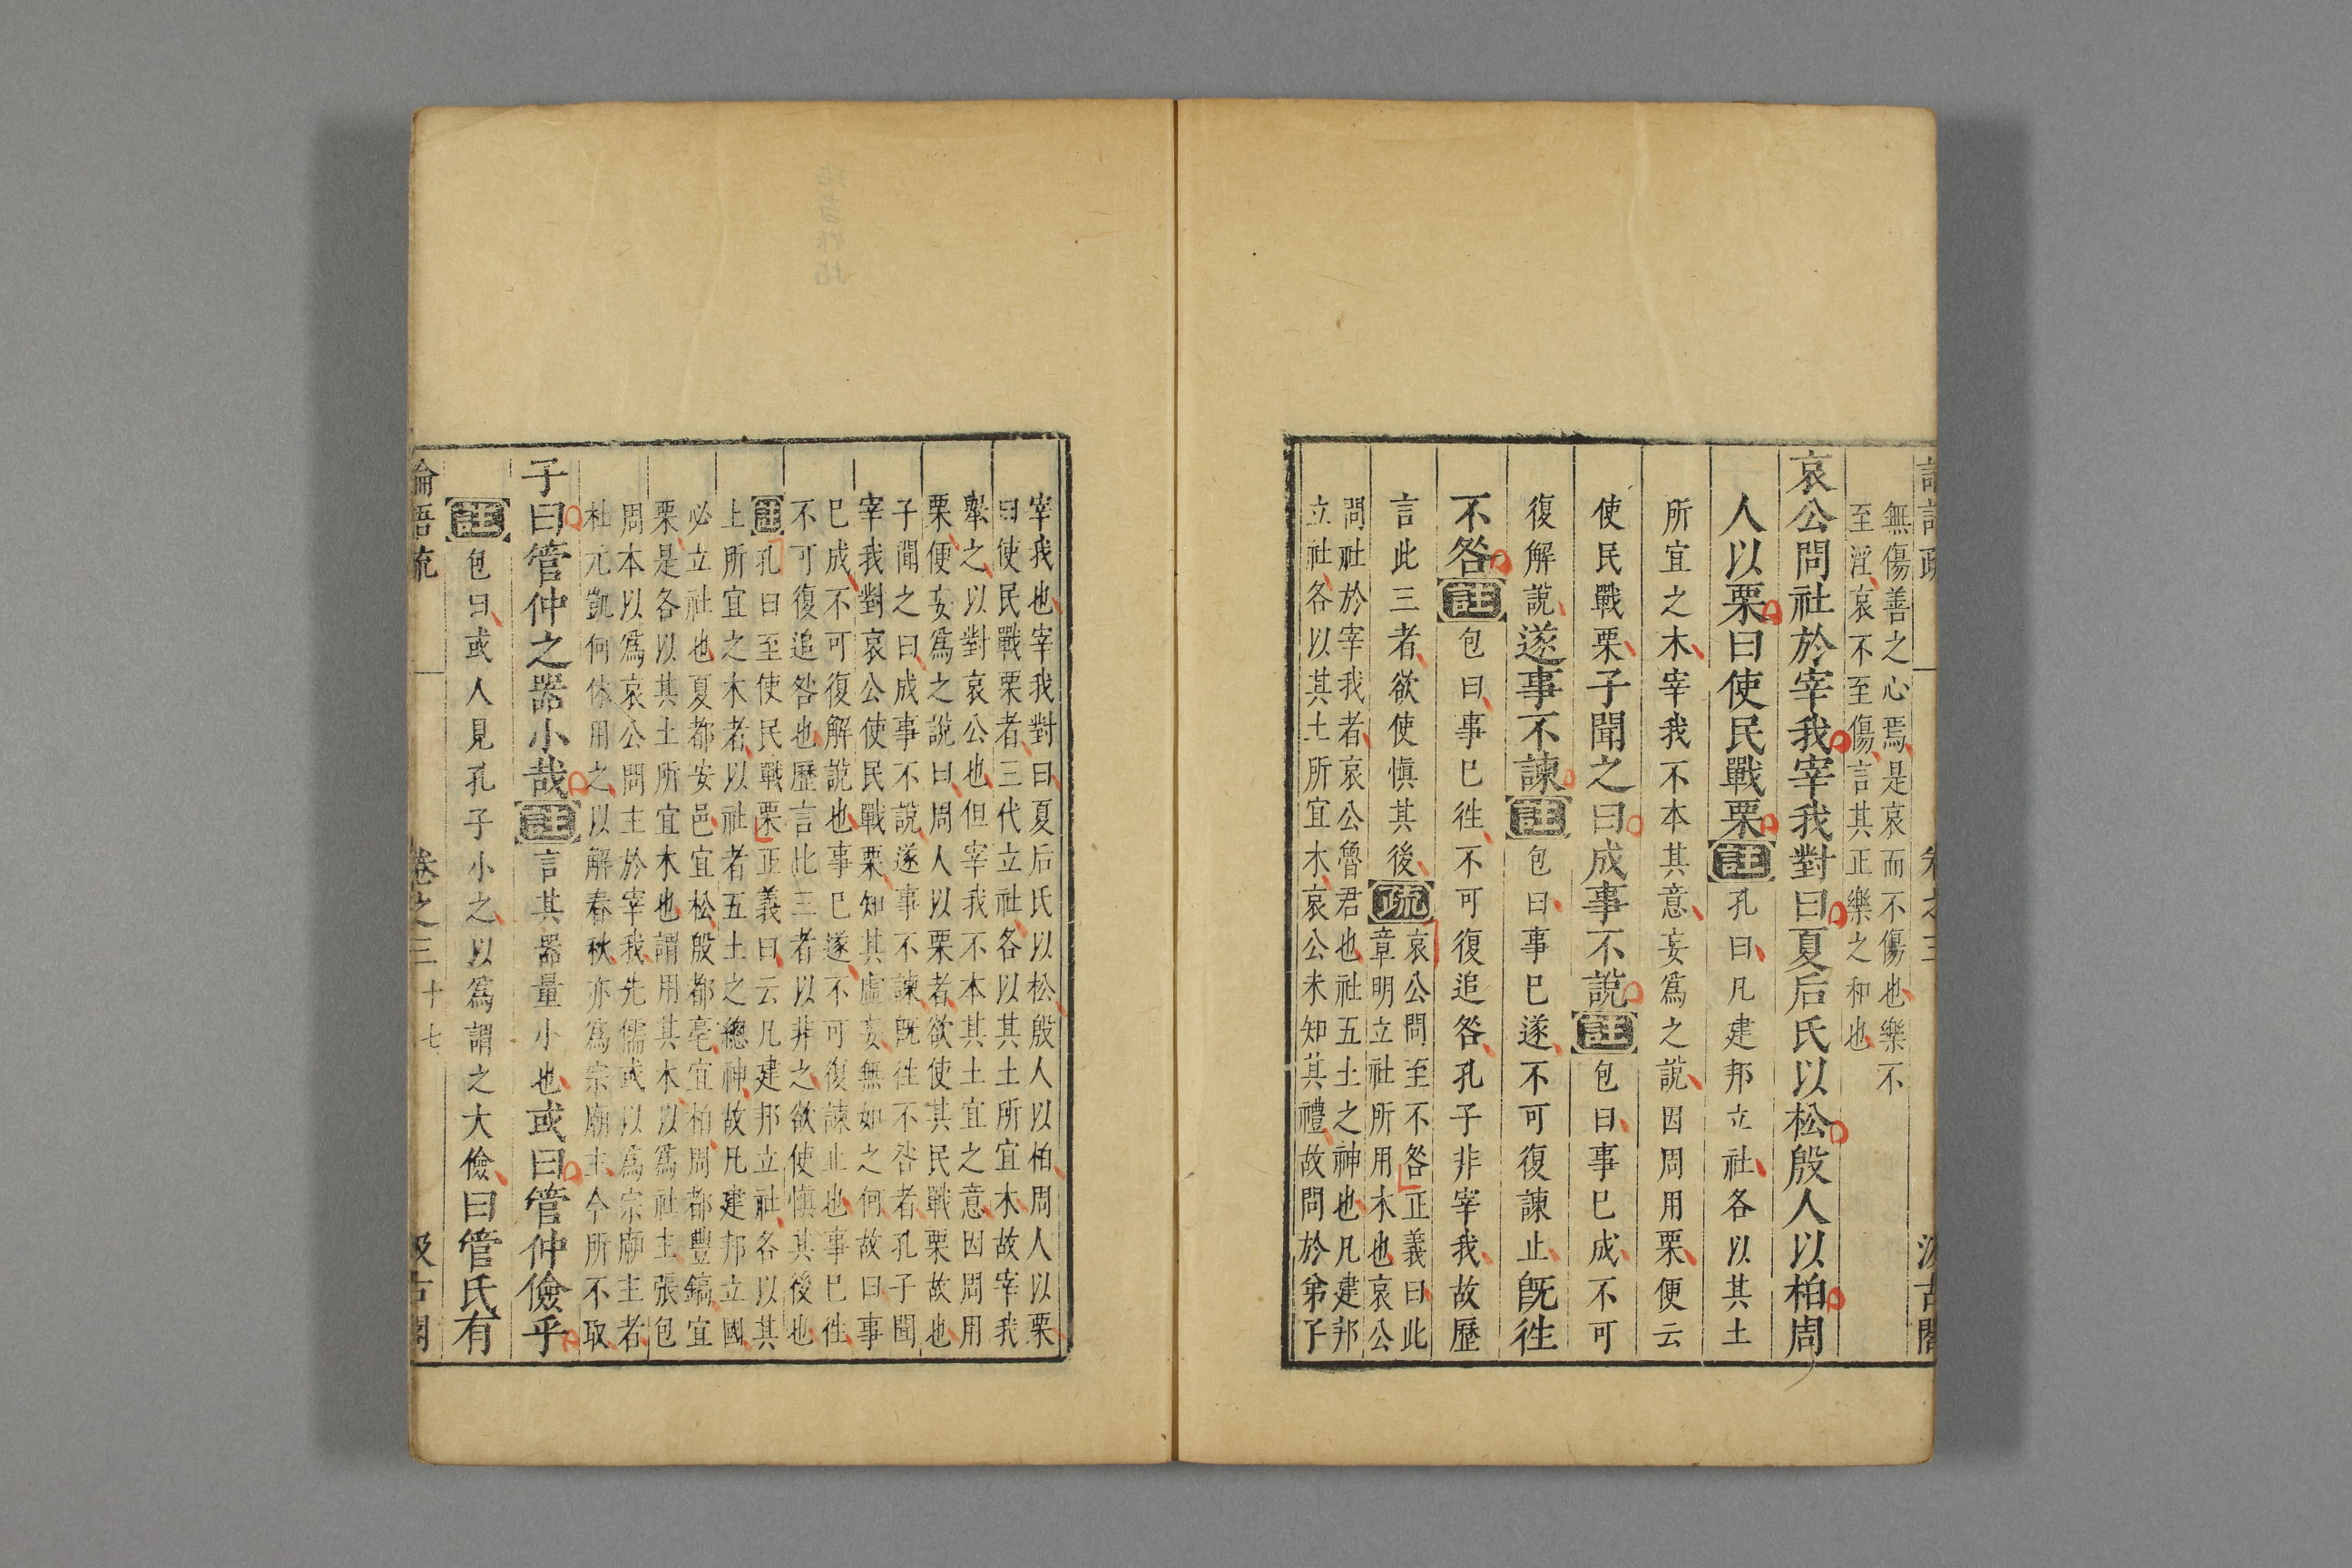 無傷善之心焉是哀而不傷也樂不
至淫哀不至傷言其正樂之和也
哀公問社於宰我宰我對曰夏后氏以松殷人以柏周
人以栗曰使民戰栗註孔曰凡建邦立社各以其土
所宜之木宰我不本其意妄爲之說因周用栗便云
使民戰栗子聞之曰成事不說註包曰事已成不可
復解說遂事不諫註包曰事已遂不可復諫止旣徃
不咎註包曰事已徃不可復追咎孔子非宰我故歷
言此三者欲使慎其後疏
哀公問至不咎正義曰此
章明立社所用木也哀公
問社於宰我者哀公魯君也社五土之神也凡建邦
立社各以其土所宜木哀公未知其禮故問於弟子
宰我也宰我對曰夏后氏以松殷人以柏周人以栗
曰使民戰栗者三代立社各以其土所宜木故宰我
舉之以對哀公也但宰我不本其土宜之意因周用
栗便妄爲之說曰周人以栗者欲使其民戰栗故也
子聞之曰成事不說遂事不諫旣徃不咎者孔子聞
宰我對哀公使民戰栗知其虛妄無如之何故曰事
已成不可復解說也事已遂不可復諫止也事已徃
不可復追咎也歷言此三者以非之欲使慎其後也
註孔曰至使民戰栗正義曰云凡建邦立社各以其
土所宜之木者以社者五土之總神故凡建邦立國
必立社也夏都安邑宜松殷都亳宜柏周都豐鎬宜
栗是各以其土所宜木也謂用其木以爲社主張包
周本以爲哀公問主於宰我先儒或以爲宗廟主者
杜元凱何休用之以解春秋亦爲宗廟主今所不取
子曰管仲之器小哉註言其器量小也或曰管仲儉乎
註包曰或人見孔子小之以爲謂之大儉曰管氏有
論語疏 卷之三 十七 汲古閣